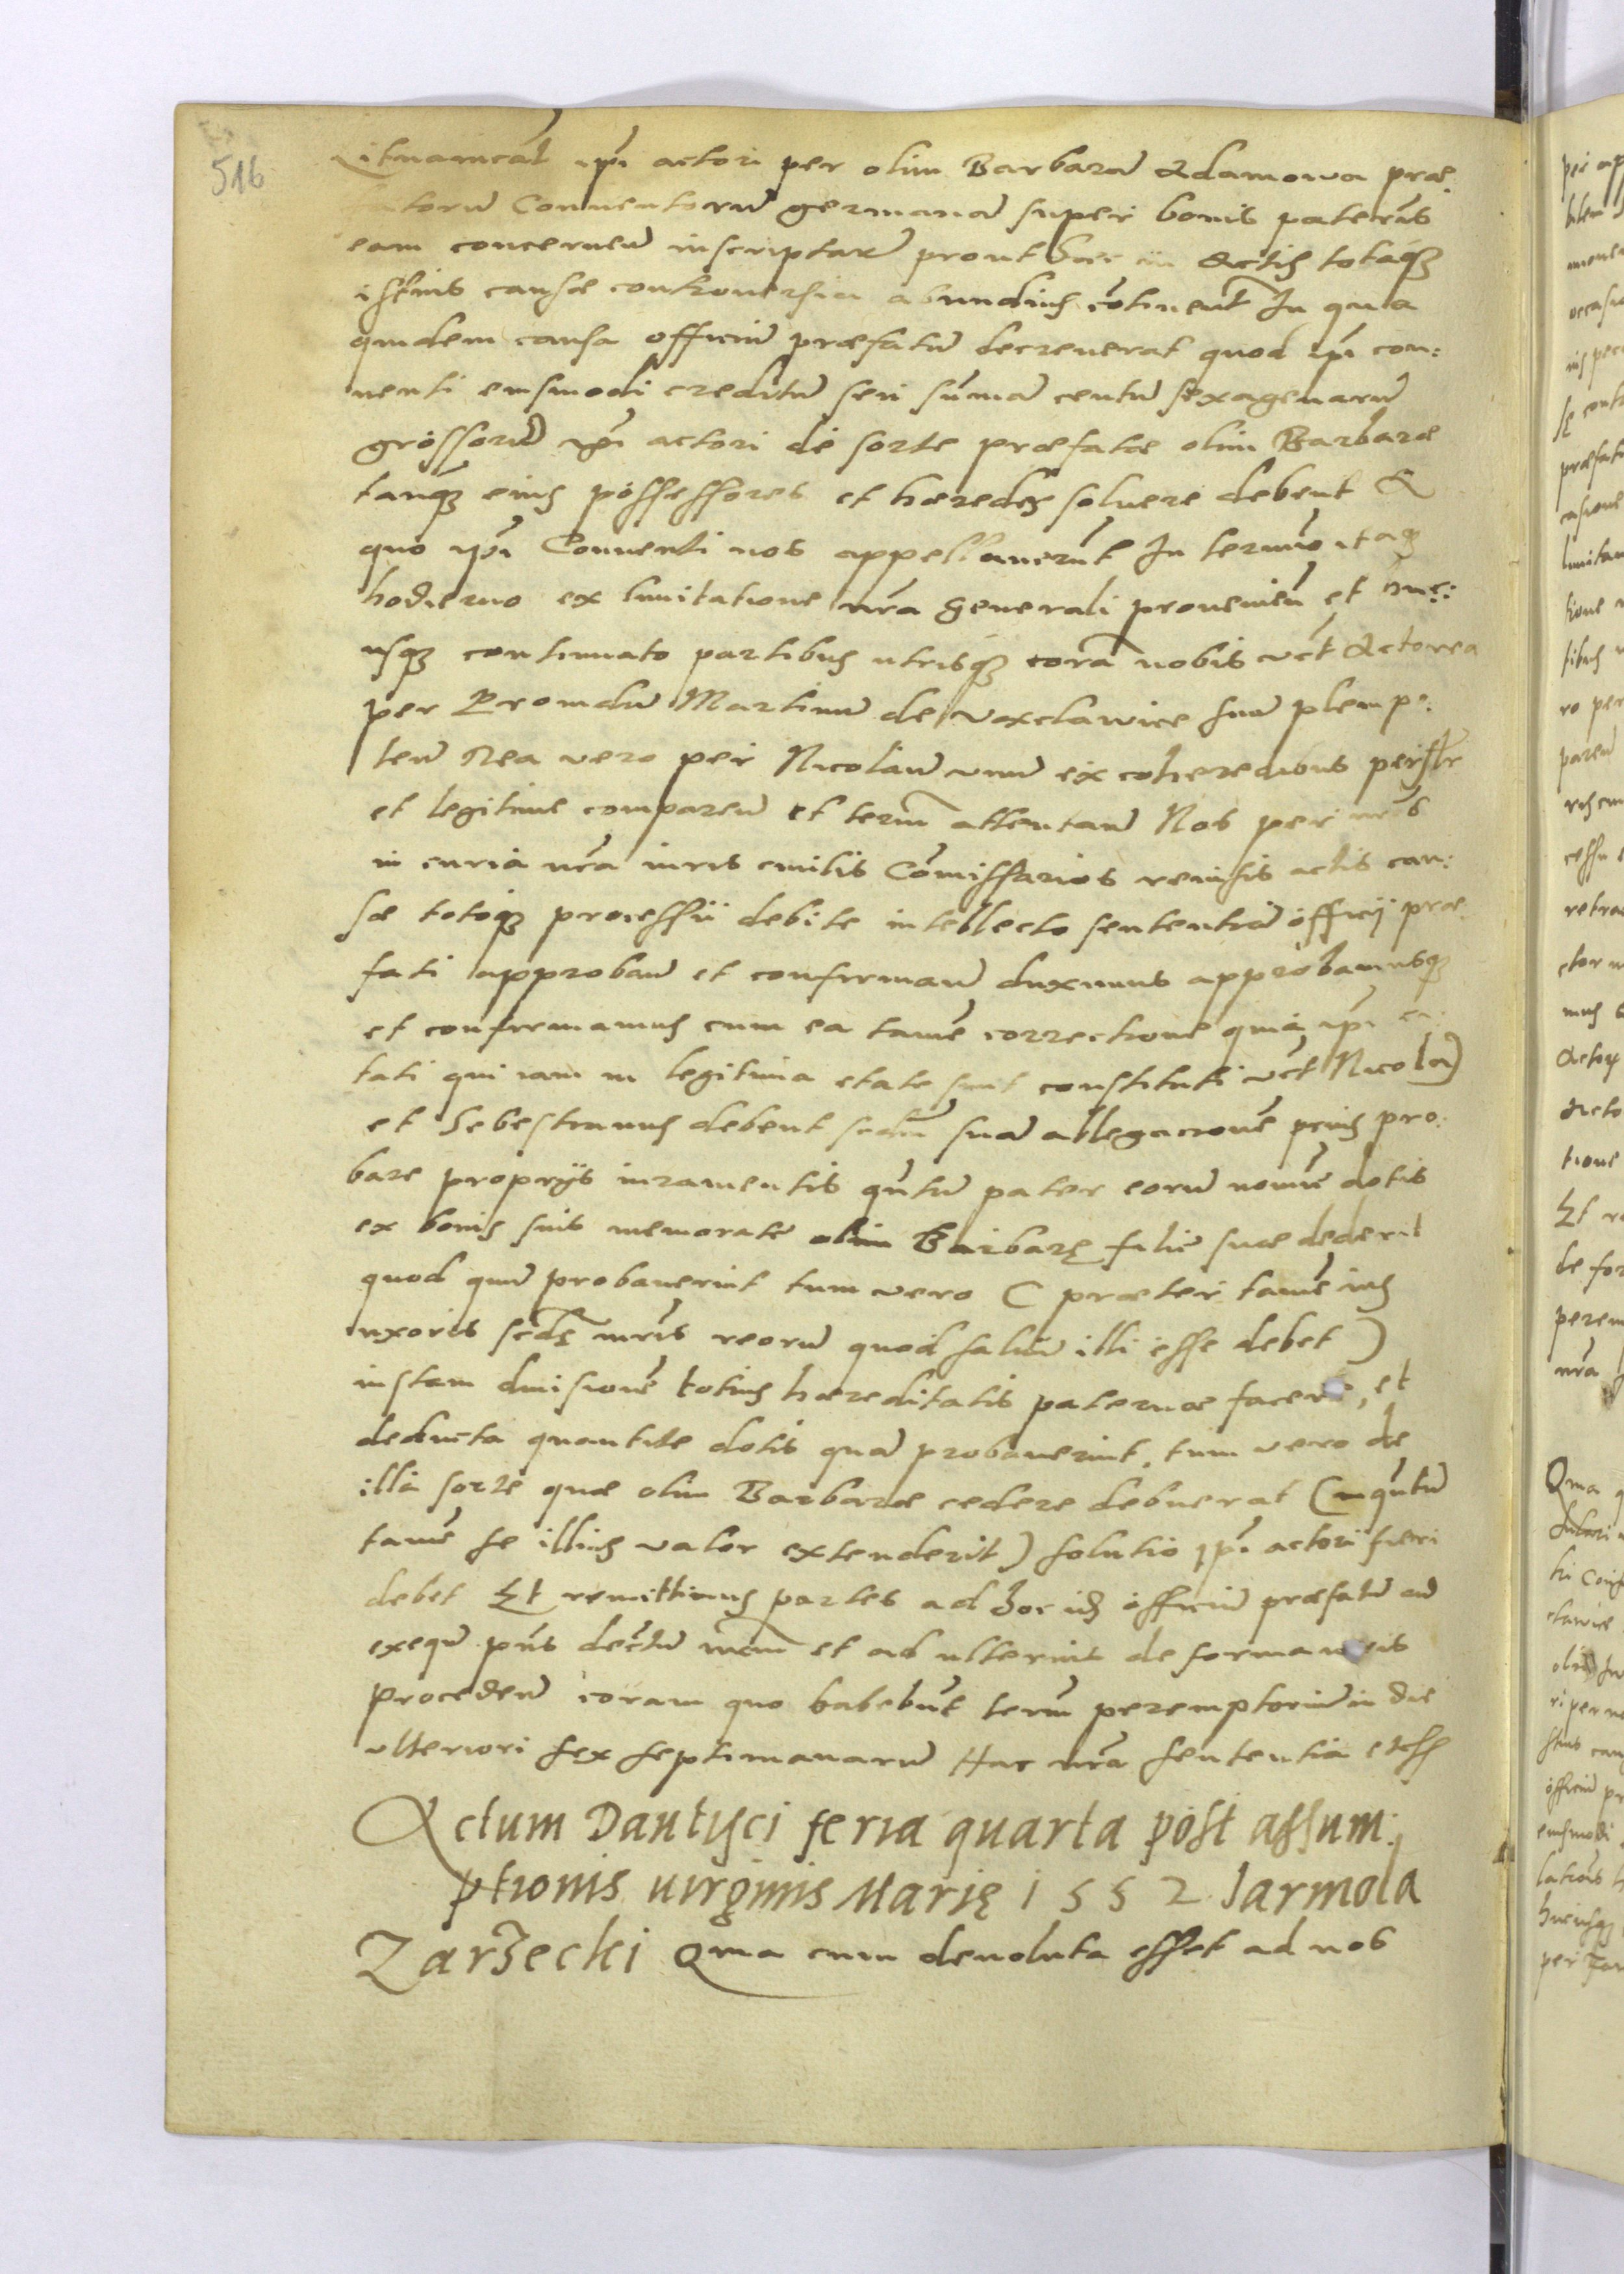 516
ipi actori per olim Barbara Adamowa præ:
toru Conventoru germana super bonis paternis
eam concernen inscriptar prout hæc in Actis totaque
istius causæ controversia abundius cotinent In qua
quidem causa officiu præfatu decreverat quod ipi con:
venti eiusmodi creditu seu suma centu sexagenaru
grossoru ipi actori de sorte præfatæ olim Barbaræ
tanque eius possessores et hæredes solvere debent A
quo ipi Conventi nos appellaverut In termino itaque
hodierno ex limitatione nra generali provenien et huc:
usque continuato partibus utrisque cora nobis vct Actorea
per Providu Martinu de Vaxclawice suu plenipo:
ten Rea vero per Nicolau unu ex coheredibus persolr
et legitime comparen et termi attentan Nos per nros
in curia nra iuris civilis Comissarios revisis actis cau:
sæ totoque processu debite intellecto sententia officij præ
fati approban et confirman duximus approbamusque
et confirmamus cum ea tame correctione quia ipi ci
tati qui iam in legitima etate sunt constituti vct Nicola
et Sebestianus debent scdm sua allegacione prius pro:
bare proprijs iuramentis qutu pater eoru nomie dotis
ex bonis suis memorate olim Barbarę filie suæ dederit
quod quu probaverint tum vero ( præter tame ius
uxoris scdę mris reoru quod salvu illi esse debet )
iustam divisione totius hæreditatis paternæ facere, et
deducta quantite dotis qua probaverint, tum vero de
illa sorte quæ olim Barbaræ cedere debuerat (inqutu
tame se illius valor extenderit) solutio ipi actori fieri
debet Et remittimus partes ad hoc ide officiu præfatu ad
exequ pns decretu nrm et ad ulterius de forma iuris
proceden coram quo habebut termi peremptoriu in die
ulteriori sex septimanaru Hac nra sententia etss
Actum Dantisci feria quarta post assum:
ptionis virginis Marię 1552 Jarmola
Zarzecki Qma cum devoluta esset ad nos